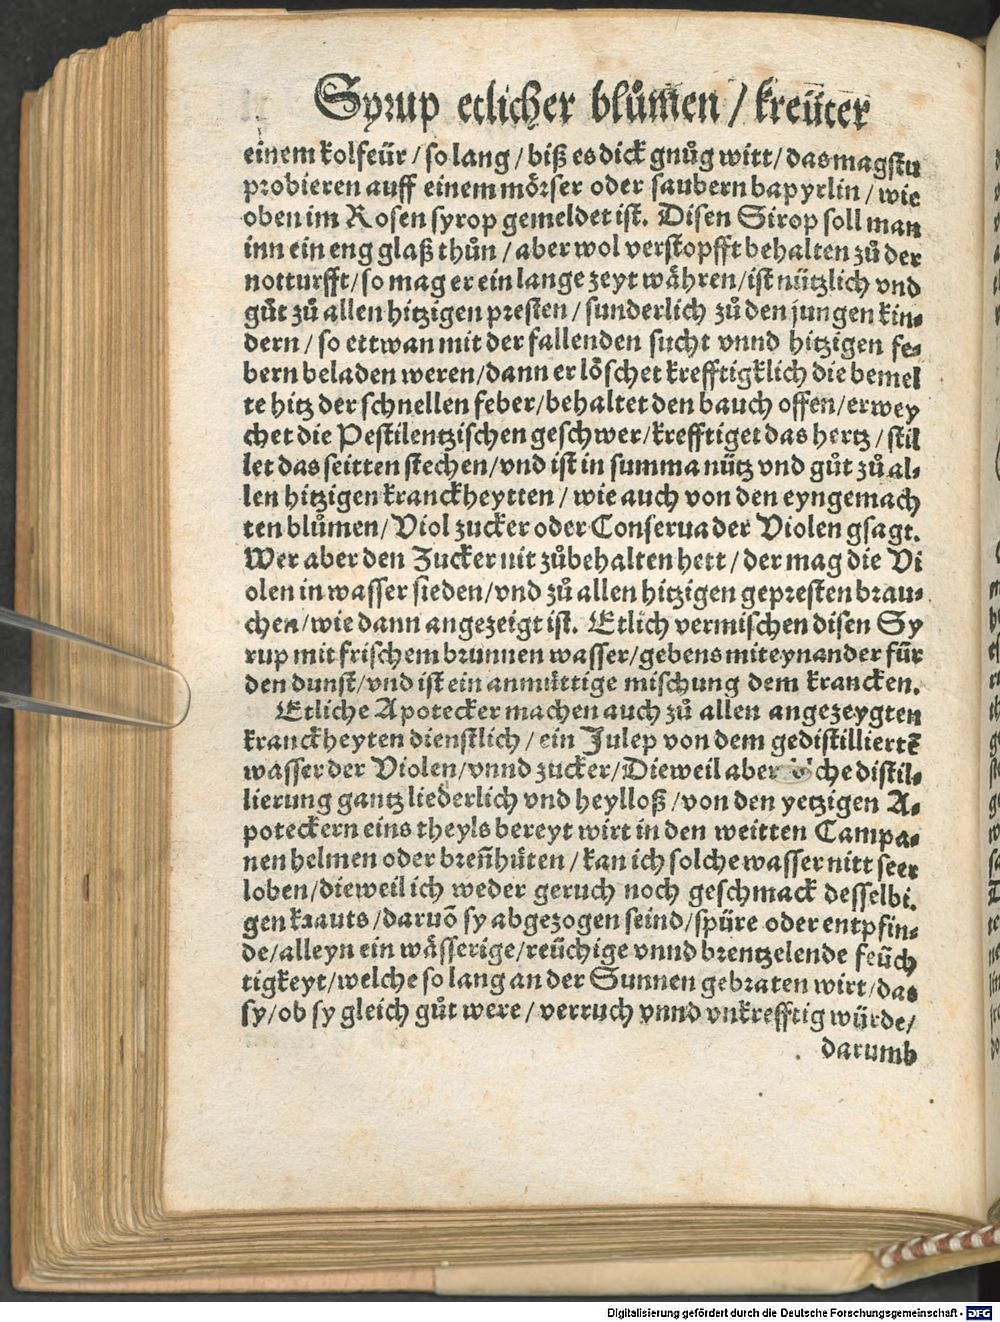 Syrup etlicher blůmen / kreüter
einem kolfeür / so lang / biß es dick gnůg witt / das magstu
probieren auff einem mörser oder saubern bapyrlin / wie
oben im Rosen syrop gemeldet ist. Disen Sirop soll man
inn ein eng glaß thůn / aber wol verstopfft behalten zů der
notturfft / so mag er ein lange zeyt währen / ist nützlich vnd
gůt zů allen hitzigen presten / sunderlich zů den jungen kin⸗
dern / so ettwan mit der fallenden sucht vnnd hitzigen fe⸗
bern beladen weren / dann er löschet krefftigklich die bemel
te hitz der schnellen feber / behaltet den bauch offen / erwey
chet die Pestilentzischen geschwer / krefftiget das hertz / stil
let das seitten stechen / vnd ist in summa nütz vnd gůt zů al⸗
len hitzigen kranckheytten / wie auch von den eyngemach
ten blůmen / Viol zucker oder Conserua der Violen gsagt.
Wer aber den Zucker nit zůbehalten hett / der mag die Vi
olen in wasser sieden / vnd zů allen hitzigen gepresten brau⸗
chen / wie dann angezeigt ist. Etlich vermischen disen Sy
rup mit frischem brunnen wasser / gebens miteynander für
den dunst / vnd ist ein anmüttige mischung dem krancken.
Etliche Apotecker machen auch zů allen angezeygten
kranckheyten dienstlich / ein Julep von dem gedistilliertẽ
wasser der Violen / vnnd zucker / Dieweil aber distil⸗
lierung gantz liederlich vnd heylloß / von den yetzigen A⸗
poteckern eins theyls bereyt wirt in den weitten Campa⸗
nen helmen oder breñhüten / kan ich solche wasser nitt seer
loben / dieweil ich weder geruch noch geschmack desselbi.
gen krauts / daruõ sy abgezogen seind / spüre oder entpfin⸗
de / alleyn ein wässerige / reüchige vnnd brentzelende feüch
tigkeyt / welche so lang an der Sunnen gebraten wirt / das
sy / ob sy gleich gůt were / verruch vnnd vnkrefftig würde /
darumb
Digitalisierung gefördert durch die Deutsche Forschungsgemeinschaft - DFG